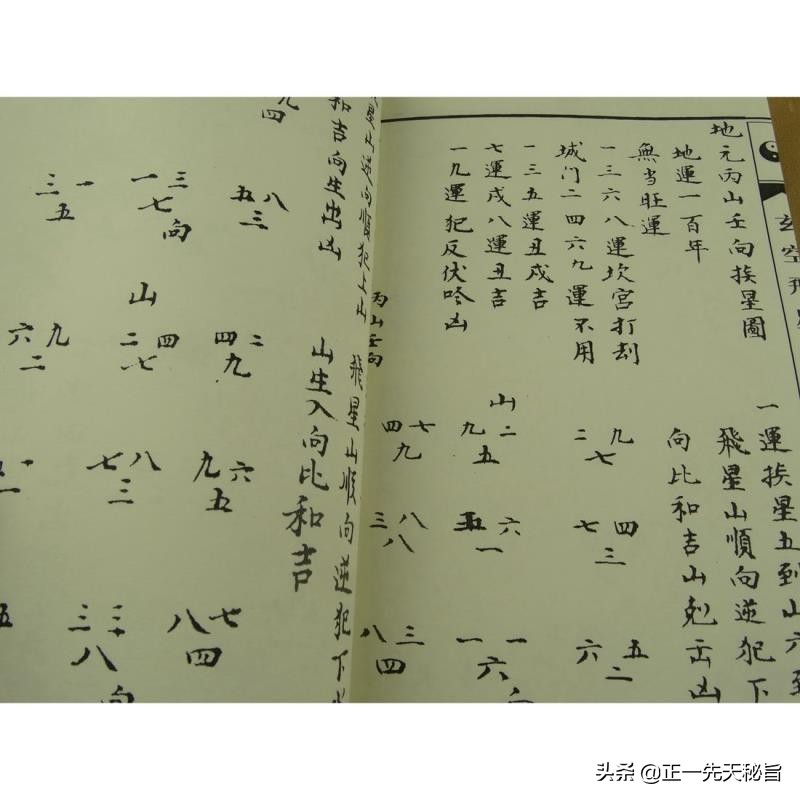 玄空飛星
地元丙山壬向挨星圖
地運一百年
無当旺運
一三六八運坎宮打刦
城门二四六九運不用
一三五運丑戌吉
七運戌八運丑吉
一九運犯反伏吟凶
一運挨星五到山六到
飛星山順向逆犯下
向比和吉山剋出凶
山
四七 九二 二九
九 五 七
三八 五六 七四
八 一 三
八三 一一 六五
四 六 二
丙山壬向
星山逆向順犯上山
和吉向生出凶
九
四
三一 一三 五八
五 七 三
向
飛星山順向逆犯下
山生入向比和吉
山
六九 二四 四二
二 七 九
一 七八 九六
一 三 五
五 三三 八七
八 四
向
头条 @正一先天秘旨